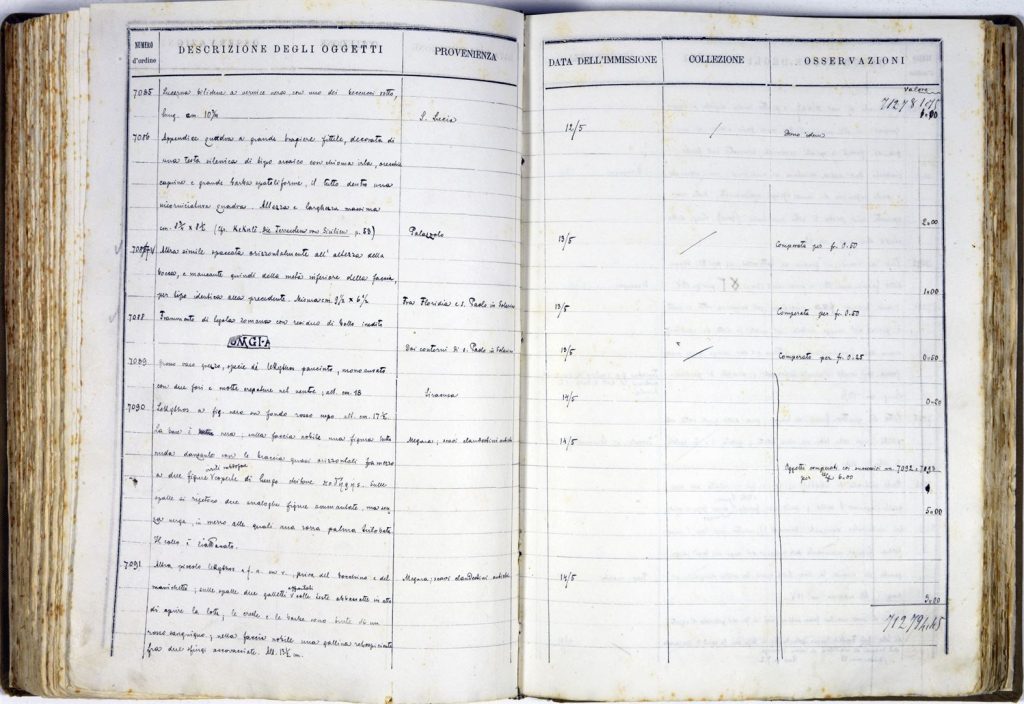 NUMERO d'ordine
DESCRIZIONE DEGLI OGGETTI
PROVENIENZA
7085 Lucerna bilicne a vernice nera con uno dei beccucci rotto,
lung. cm. 10
S. Lucia
7086 Appendice quadra a grande bragiere fittile, decorata di
una testa silenica di tipo arcaico con chioma irta, orecchie
caprine e grande barba spatoliforme, il tutto dentro una
riquadra. Altezza e larghezza massima
cm. 8 x 8 (Cfr. Kekulé Die Terracotten von Sicilien p. 58)
Palazzolo
7087 Altra simile spaccata orizzontalmente all'altezza della
bocca, e mancante quindi della metà inferiore della faccia,
per tipo identica alla precedente. Misura cm. 9 1/2 x 6 1/2
Fra Floridia e S. Paolo in Solarino
7088 Frammento di tegola romana con residuo di bollo inedito
OMGIA
Dai contorni di S. Paolo in Solarino
7089 vaso grezzo, specie di lekythos panciuto, monoansato
con due fori e molte crepature nel ventre; alt. cm. 18
Siracusa
7090 Lekythos a fig. nere su fondo rosso cupo alt. cm. 17
La base è nera; sulla faccia nobile una figura tutta
nuda danzante con le braccia quasi orizzontali fra mezzo
a due figure virili coperte di lungo
spalle si ripetono due analoghe figure ammantate, ma
verga, in mezzo alle quali una rossa palma
Il collo è
Megara; scavi clandestini antichi
7091 Altro piccolo lekythos a f. n. su r., privo del bocchino e del
manichetto; sulle spalle due galletti colle teste abbassate in atto
di aprire la lotta; le creste e le barbe sono tinte di un
rosso sanguigno; nella faccia nobile una gallina
fra due sfingi accovacciate. Alt. 13 1/2 cm.
Megara; scavi clandestini antichi
DATA DELL'IMMISSIONE
COLLEZIONE
OSSERVAZIONI
Valore
71278
1.00
12/5
/
Dono idem
2.00
13/5
/
Comperata per fr. 0.50
1.00
13/5
Comperata per fr. 0.50
13/5
/
Comperato per fr. 0.25
0.50
14/5
0.20
14/5
Oggetti comperati coi numeri 7092
per 6.00
5.00
14/5
3.00
71279